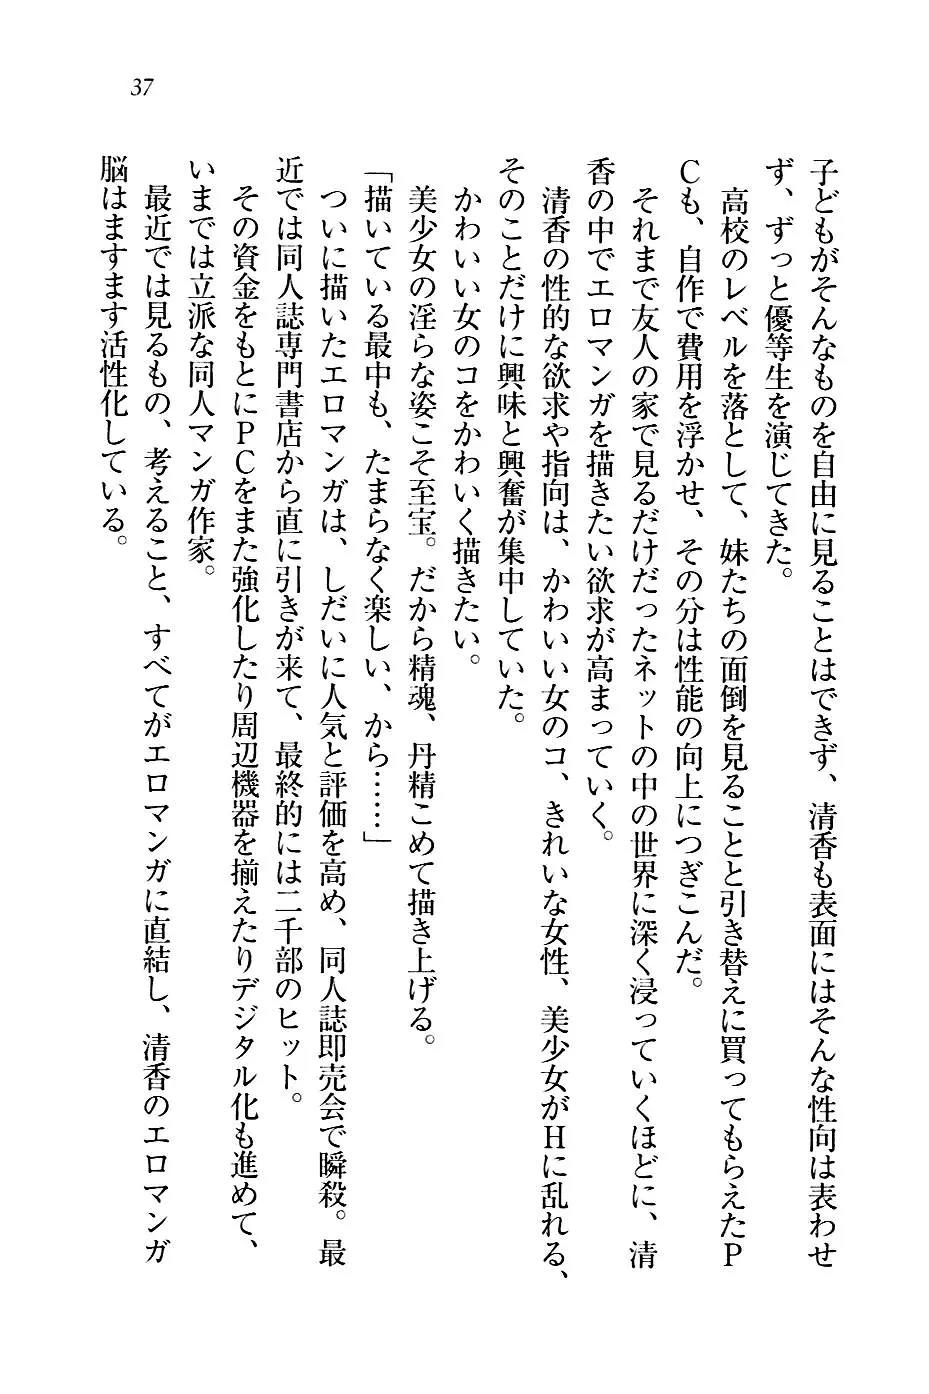 37
子どもがそんなものを自由に見ることはできず、清香も表面にはそんな性向は表わせ
ず、ずっと優等生を演じてきた。
高校のレベルを落として、妹たちの面倒を見ることと引き替えに買ってもらえたP
Cも、自作で費用を浮かせ、その分は性能の向上につぎこんだ。
それまで友人の家で見るだけだったネットの中の世界に深く浸っていくほどに、清
香の中でエロマンガを描きたい欲求が高まっていく。
清香の性的な欲求や指向は、かわいい女のコ、きれいな女性、美少女がHに乱れる、
そのことだけに興味と興奮が集中していた。
かわいい女のコをかわいく描きたい。
美少女の淫らな姿こそ至宝。だから精魂、丹精こめて描き上げる。
「描いている最中も、たまらなく楽しい、から……」
ついに描いたエロマンガは、しだいに人気と評価を高め、同人誌即売会で瞬殺。最
近では同人誌専門書店から直に引きが来て、最終的には二千部のヒット。
その資金をもとにPCをまた強化したり周辺機器を揃えたりデジタル化も進めて、
いまでは立派な同人マンガ作家。
最近では見るもの、考えること、すべてがエロマンガに直結し、清香のエロマンガ
脳はますます活性化している。